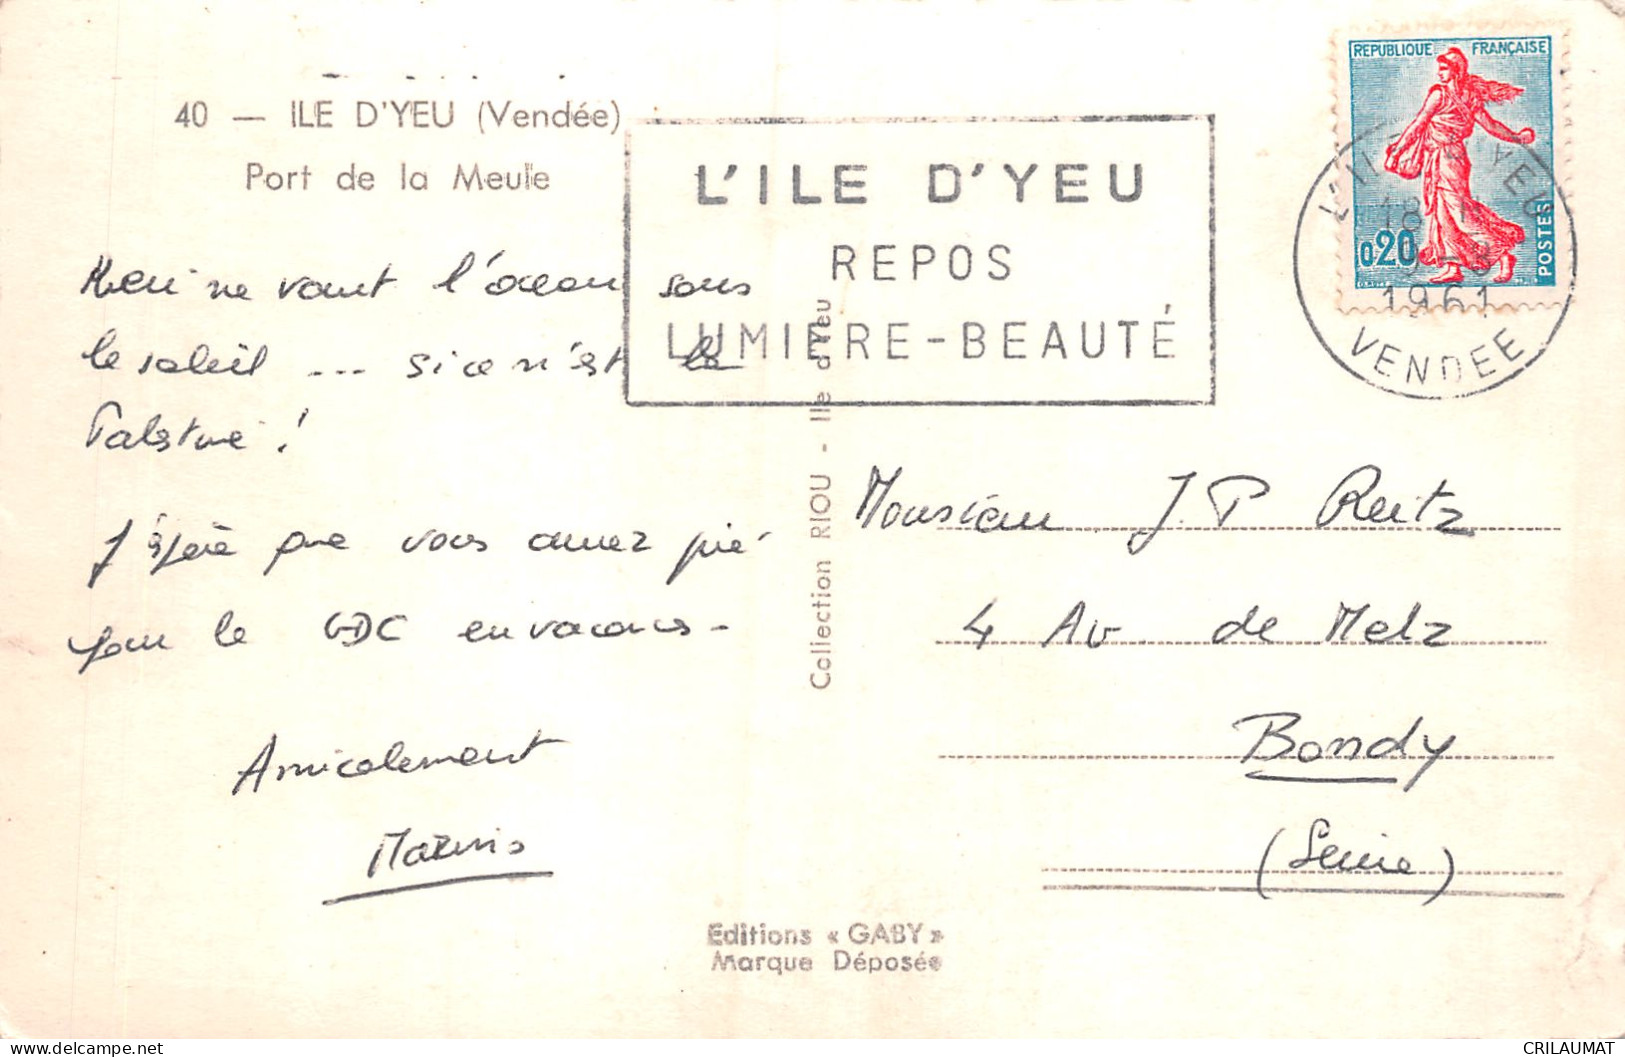 40 — ILE D'YEU (Vendée)
Port de la Meule
Rien ne vaut l'océan sous
le soleil --- si ce n'est la
Palestine !
J'espère que vous avez pié-
pour le GDC en vacances -
Amicalement
L'ILE D'YEU
REPOS
LUMIERE-BEAUTÉ
REPUBLIQUE FRANÇAISE
0,20
POSTES
L'ILE D'YEU
18 H
9-8
1961
VENDEE
Collection RIOU - Ile d'Yeu
Monsieur J.P Reitz
4 Av. de Metz
Bondy
(Seine)
Editions « GABY »
Marque Déposée
delcampe.net
CRILAUMAT